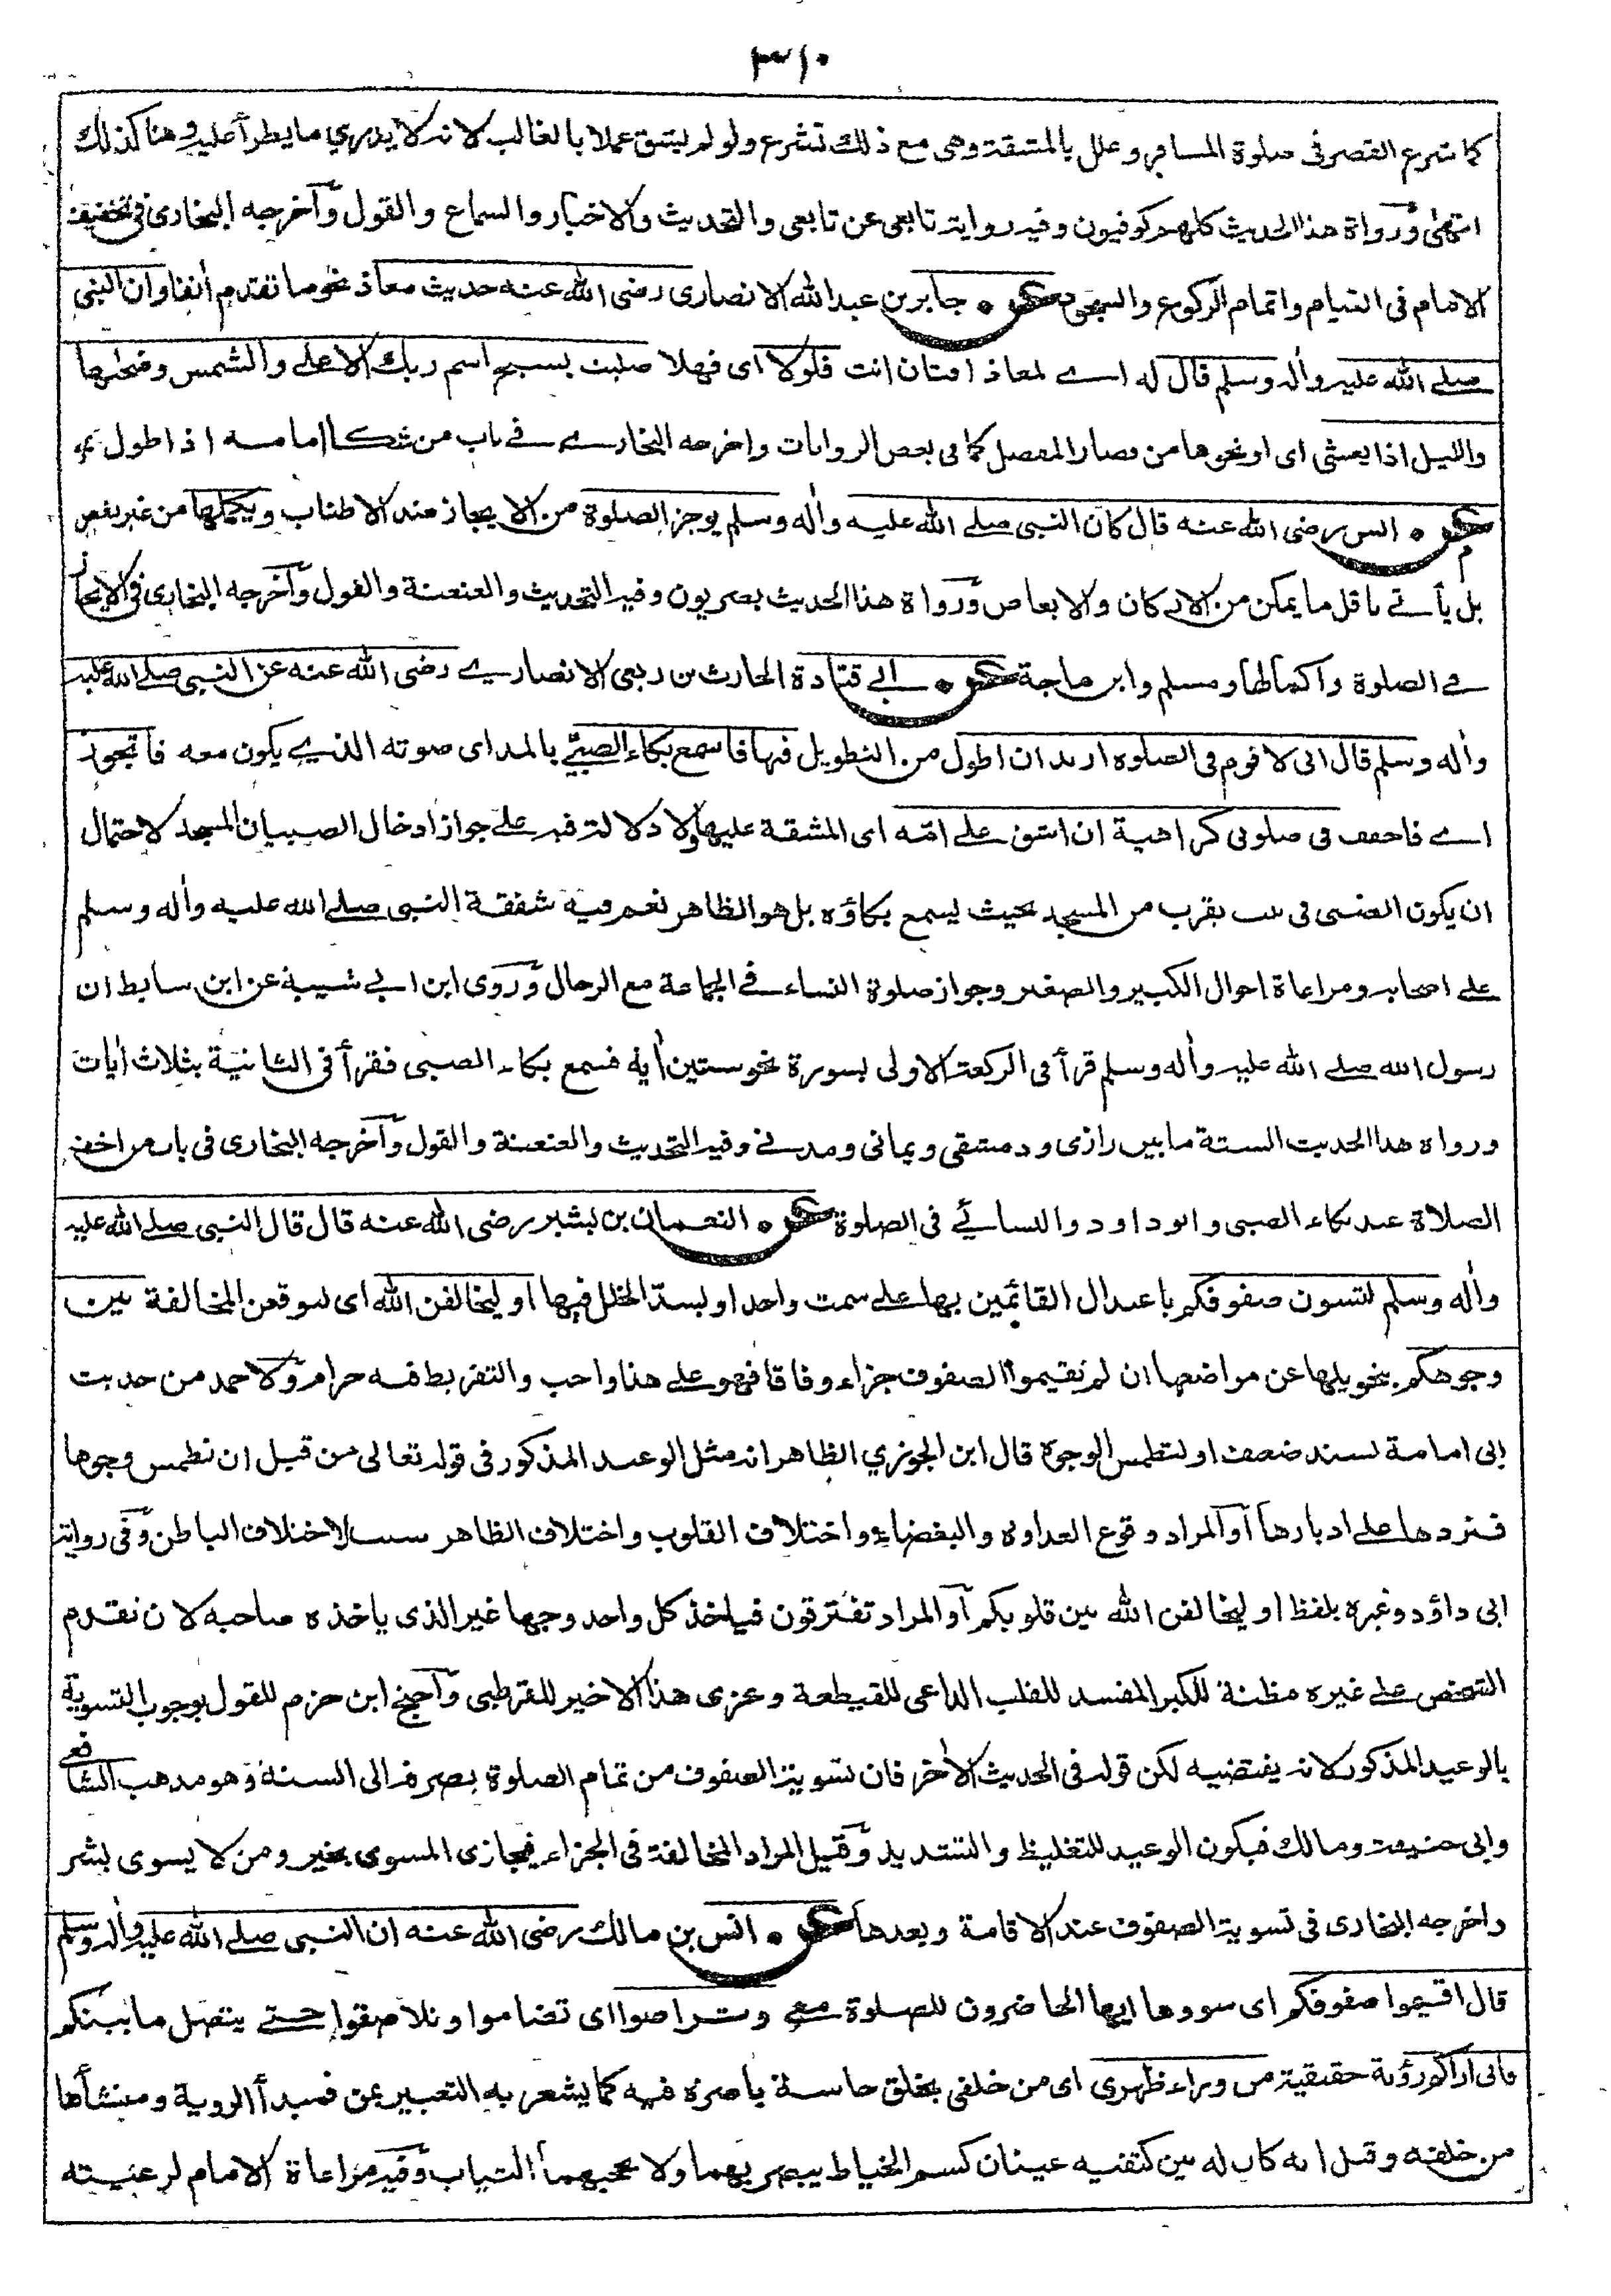 ٣١٠
كما شرع القصر في صلوة المسافر وعلل بالمشقة وهى مع ذلك تشرع ولو لم يشق عملا بالغالب لانه لا يدري ما يطرأ عليه وهنا كذلك
انتهى ورواة هذا الحديث كلهم كوفيون وفيه رواية تابعى عن تابعى والتحديث والاخبار والسماع والقول وآخرجه البخارى في تخفيف
الامام في القيام واتمام الركوع والسجود عن جابر بن عبد الله الانصارى رضى الله عنه حديث معاذ نحو ما تقدم أنفا وان النبى
صلے الله عليه وأله وسلم قال له اے لمعاذ افتان انت فلولا اى فهلا صليت بسبح اسم ربك الاعلى والشمس وضحٰها
والليل اذا يغشى اى او نحوها من قصار المفصل كما في بعض الروايات واخرجه البخارے في باب من شكا امامه اذا طول
عن انس رضى الله عنه قال كان النبى صلے الله عليه وأله وسلم يوجز الصلوة من الايجاز ضد الاطناب ويكملها من غير نقص
بل يأتے باقل ما يمكن من الاركان والابعاض ورواة هذا الحديث بصريون وفيه التحديث والعنعنة والقول وآخرجه البخارى في الايجاز
في الصلوة واكمالها ومسلم وابن ماجة عن ابي قتادة الحارث بن ربعى الانصارے رضى الله عنه عن النبى صلے الله عليه
وأله وسلم قال انى لاقوم في الصلوة اريد ان اطول من التطويل فيها فاسمع بكاء الصبيّ بالمد اى صوته الذے يكون معه فاتجوز
اے فاخفف في صلوتى كراهية ان اشق علے امّه اى المشقة عليها ولا دلالة فيه علے جواز ادخال الصبيان المسجد لاحتمال
ان يكون الصبى في بيت بقرب من المسجد بحيث يسمع بكاؤه بل هو الظاهر نعم فيه شفقة النبى صلے الله عليه وأله وسلم
علے اصحابه ومراعاة احوال الكبير والصغير وجواز صلوة النساء في الجماعة مع الرجال وروى ابن ابي شيبة عن ابن سابط ان
رسول الله صلے الله عليه وأله وسلم قرأ في الركعة الاولى بسورة نحو ستين أية فسمع بكاء الصبى فقرأ في الثانية بثلاث أيات
ورواة هذا الحديث الستة ما بين رازى ودمشقى ويمانى ومدنے وفيه التحديث والعنعنة والقول وآخرجه البخارى في باب من اخف
الصلاة عند بكاء الصبى وابو داود والنسائے في الصلوة عن النعمان بن بشير رضى الله عنه قال قال النبى صلے الله عليه
وأله وسلم لتسون صفوفكم باعتدال القائمين بها علے سمت واحد او بسد الخلل فيها او ليخالفن الله اى ليوقعن المخالفة بين
وجوهكم بتحويلها عن مواضعها ان لم تقيموا الصفوف جزاء وفاقا فهو علے هذا واجب والتفريط فيه حرام ولاحمد من حديث
ابى امامة بسند ضعيف او لتطمس الوجوه قال ابن الجوزي الظاهر انه مثل الوعيد المذكور في قوله تعالى من قبل ان نطمس وجوها
فنردها علے ادبارها أو المراد وقوع العداوة والبغضاء واختلاف القلوب واختلاف الظاهر سبب لاختلاف الباطن وفي رواية
ابى داؤد وغيره بلفظ او ليخالفن الله بين قلوبكم أو المراد تفترقون فياخذ كل واحد وجها غير الذى ياخذه صاحبه لان تقدم
الشخص علے غيره مظنة للكبر المفسد للقلب الداعى للقطيعة وعزى هذا الاخير للقرطبى وآحتج ابن حزم للقول بوجوب التسوية
بالوعيد المذكور لانه يقتضيه لكن قوله في الحديث الأخر فان تسوية الصفوف من تمام الصلوة يصرفه الى السنة وهو مذهب الشافعے
وابى حنيفة ومالك فيكون الوعيد للتغليظ والتشديد وقيل المراد المخالفة في الجزاء فيجازى المسوى بخير ومن لا يسوى بشر
واخرجه البخارى في تسوية الصفوف عند الاقامة وبعدها عن انس بن مالك رضى الله عنه ان النبى صلے الله عليه وأله وسلم
قال اقيموا صفوفكم اى سووها ايها الحاضرون للصلوة معے وتراصوا اى تضاموا وتلاصقوا حتے يتصل ما بينكم
فانى اراكم رؤية حقيقية من وراء ظهرى اى من خلفى بخلق حاسة باصرة فيه كما يشعر به التعبير بمن فمبدأ الروية ومنشأها
من خلفه وقيل انه كان له بين كتفيه عينان كسم الخياط يبصر بهما ولا تحجبهما الثياب وفيه مراعاة الامام لرعيته